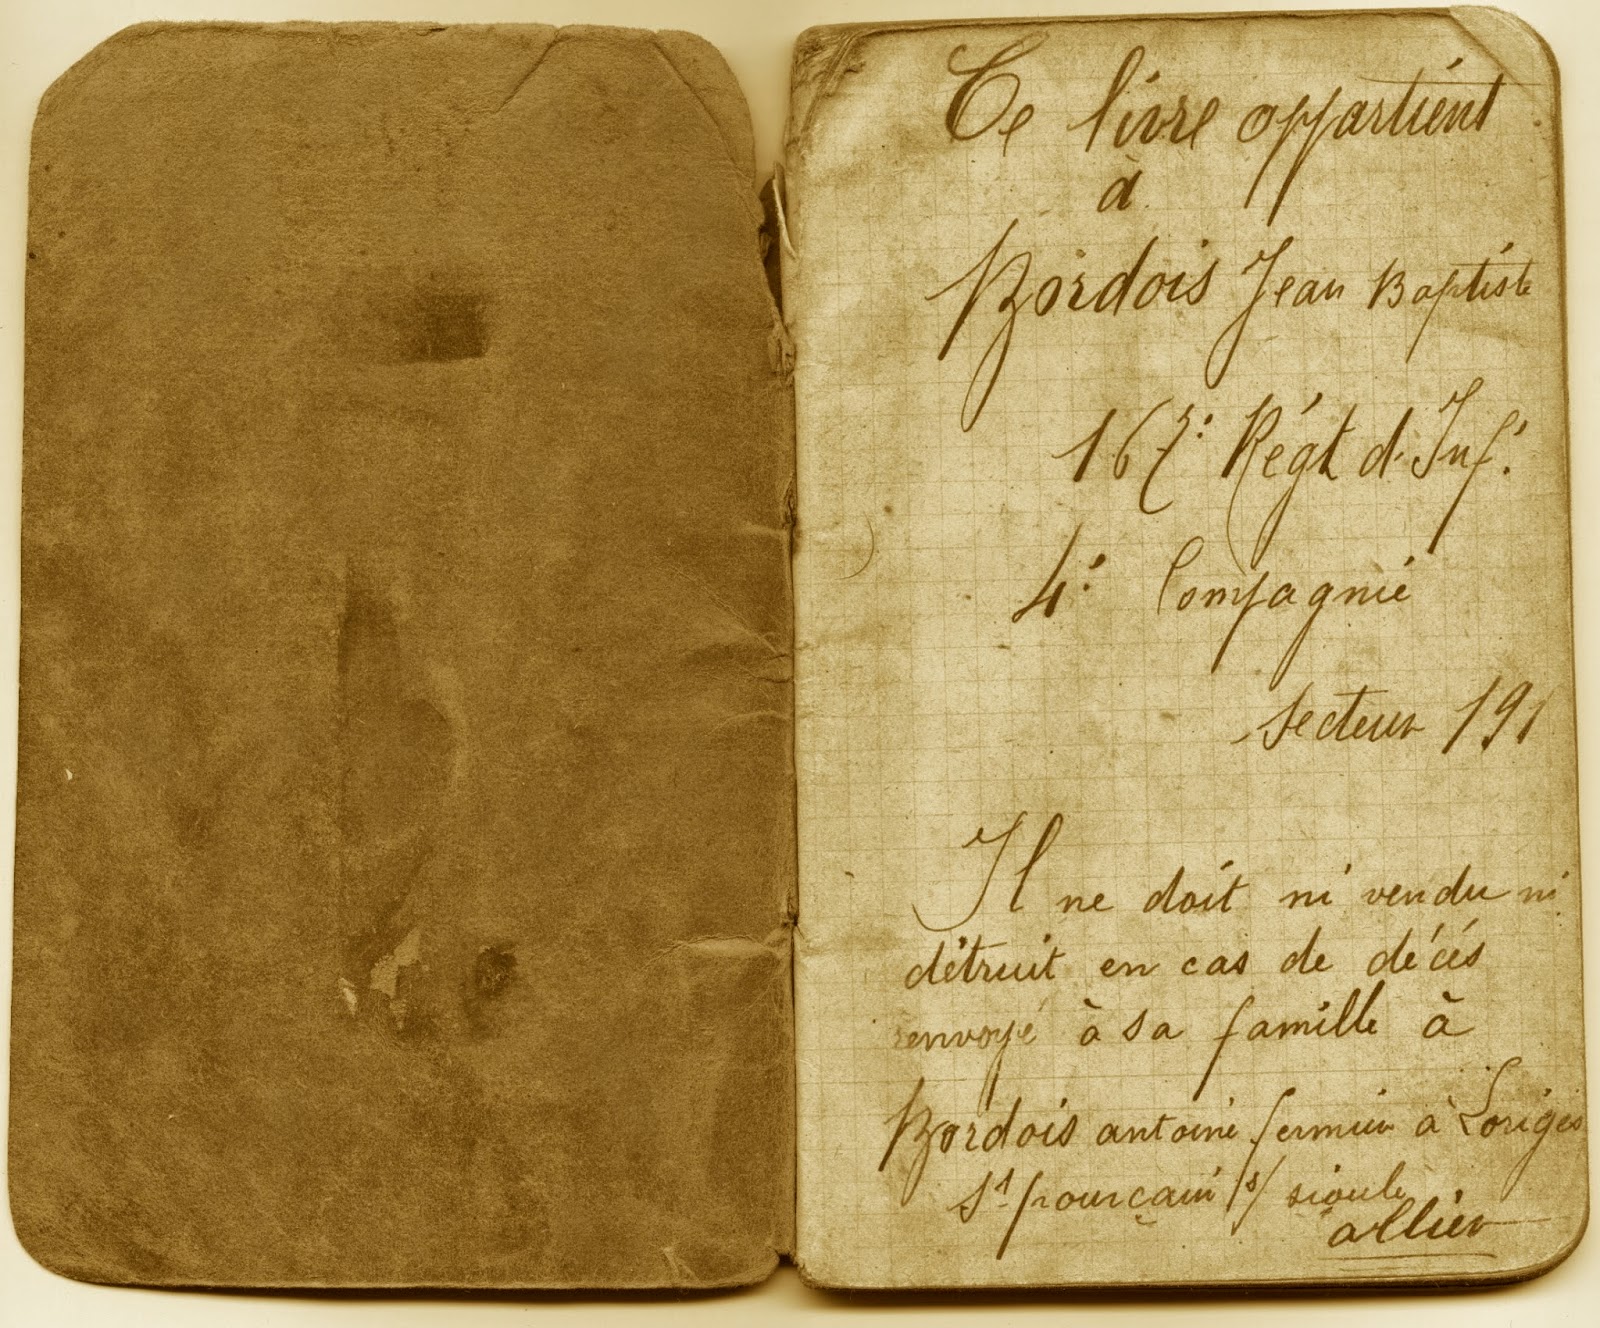 Ce livre appartient
à
Bordois Jean Baptiste
167e: Régt d. Inf.
4e Compagnie
secteur 191
Il ne doit ni vendu ni
détruit en cas de décés
renvoyé à sa famille à
Bordois antoine fermier à Loriges
St pourçain /s/ sioule
allier